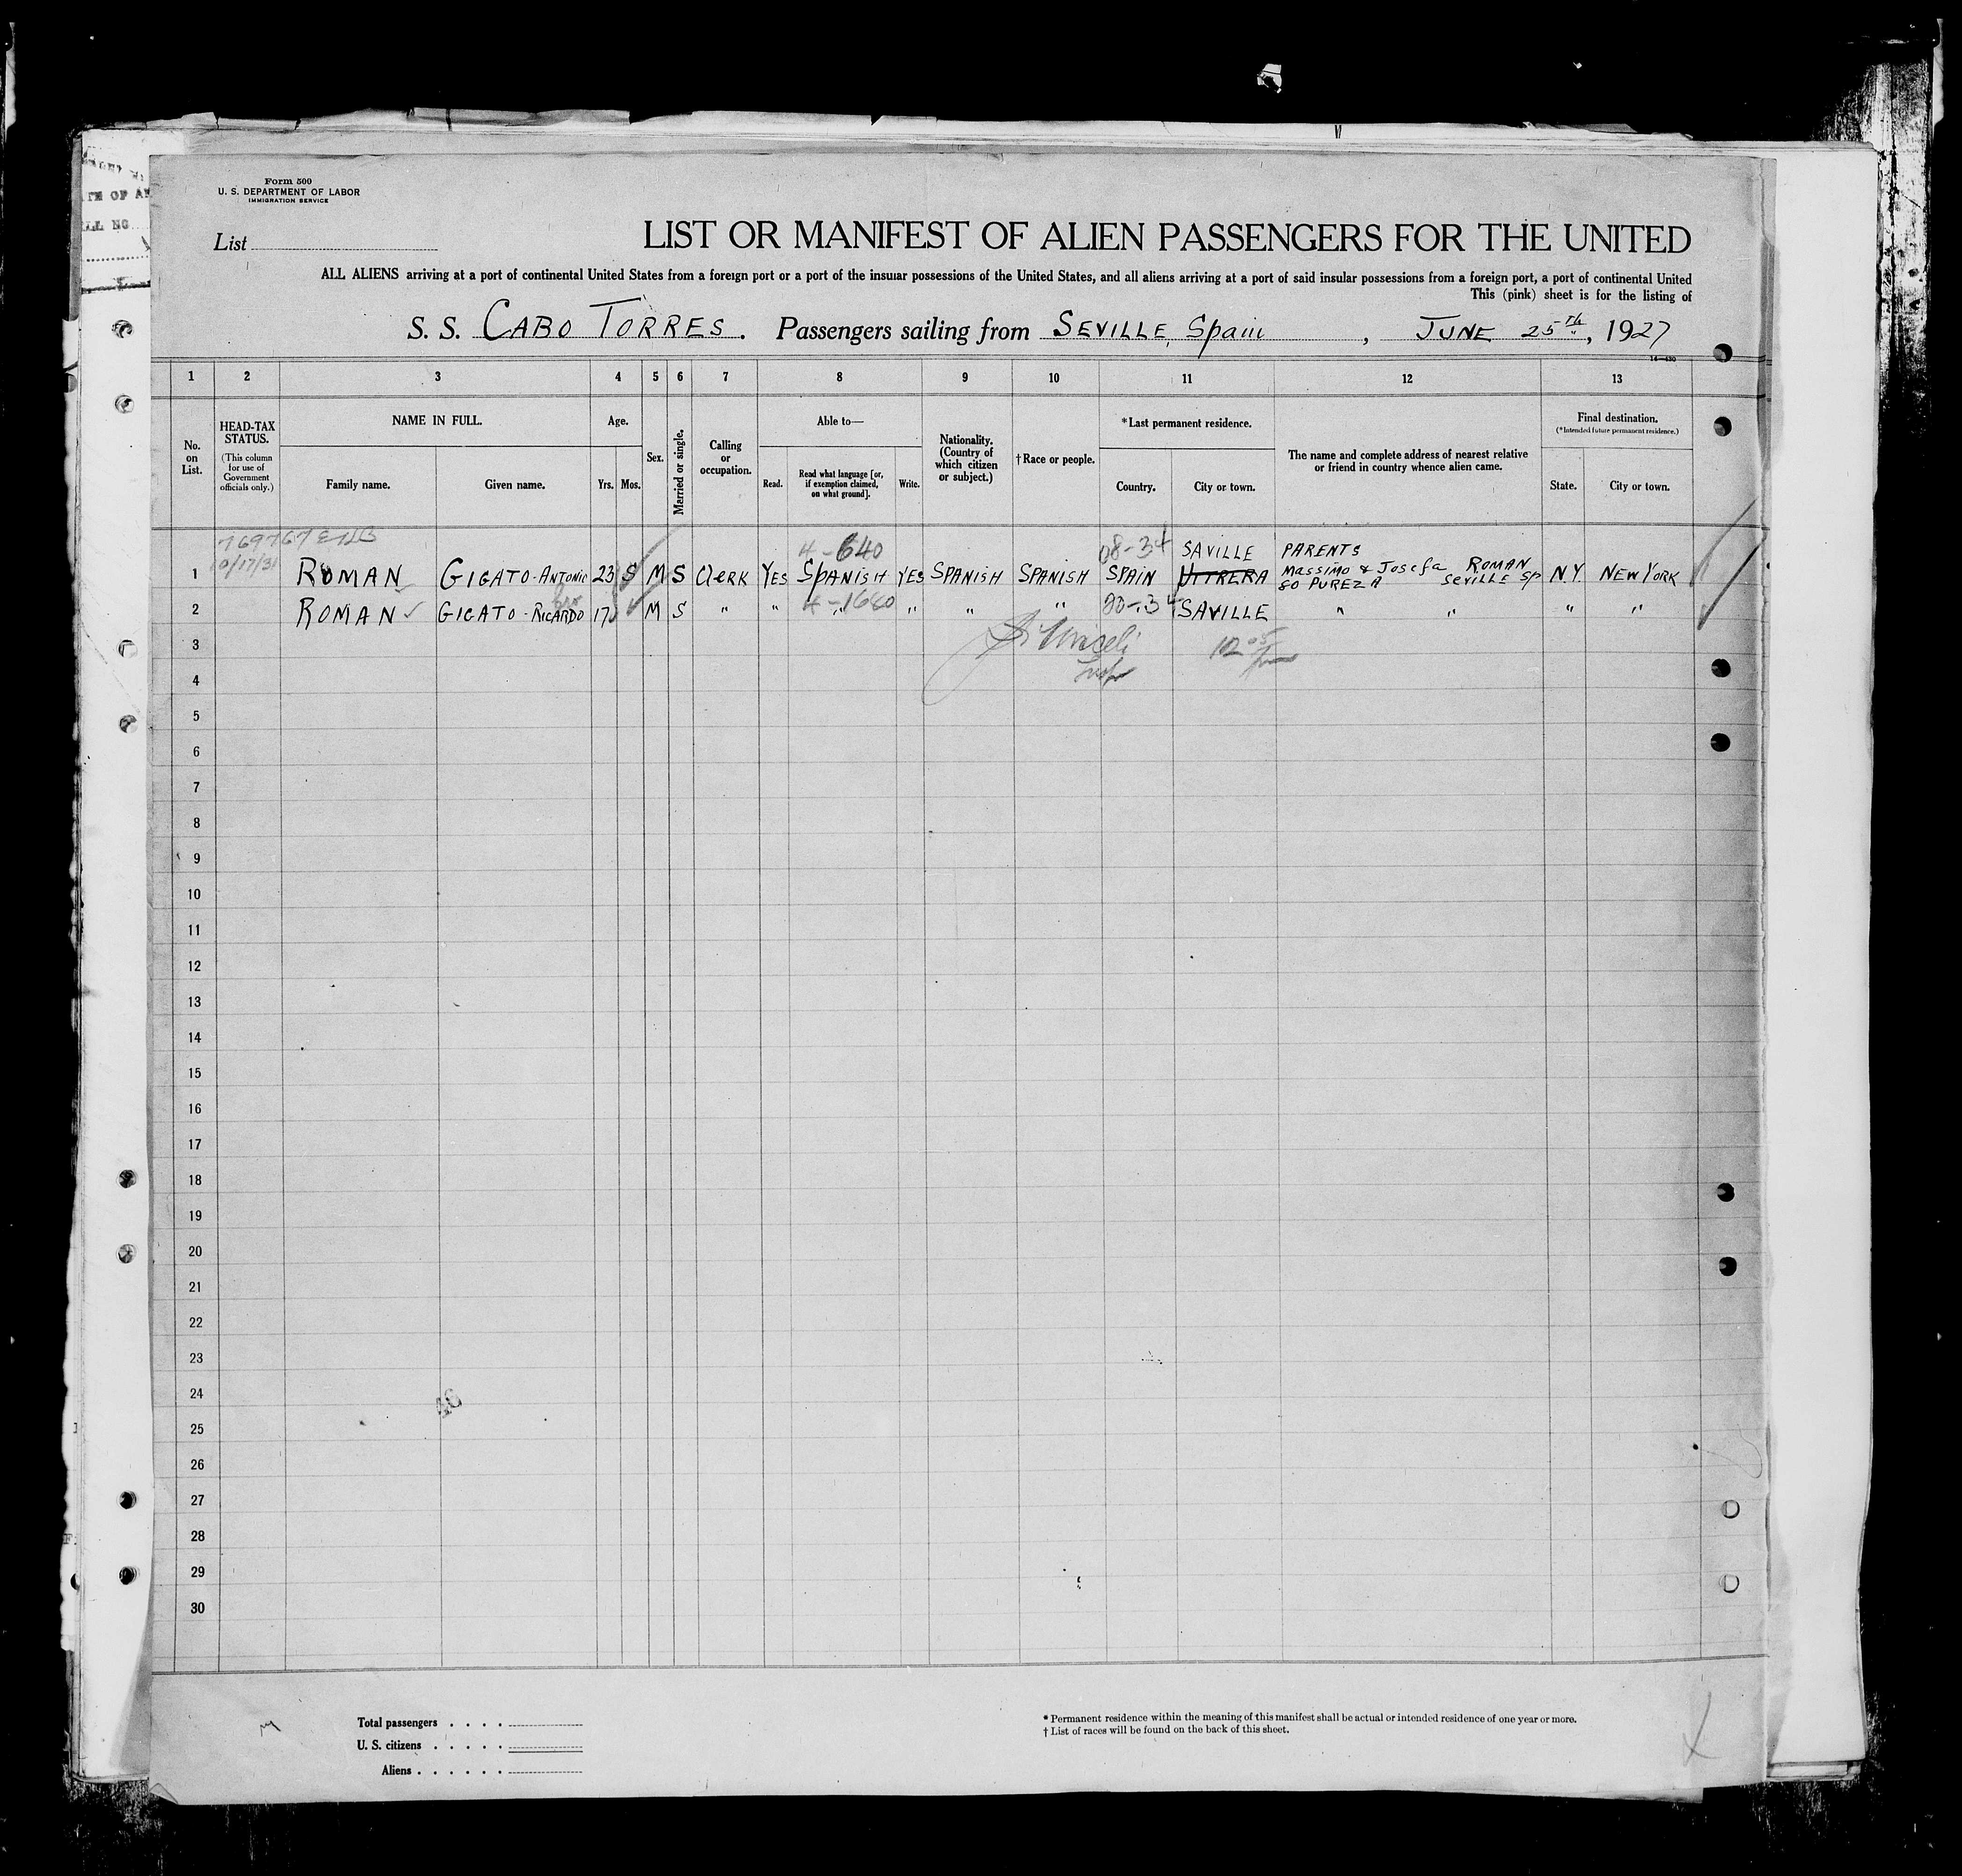 Form 500
U. S. DEPARTMENT OF LABOR
IMMIGRATION SERVICE
List
LIST OR MANIFEST OF ALIEN PASSENGERS FOR THE UNITED
ALL ALIENS arriving at a port of continental United States from a foreign port or a port of the insular possessions of the United States, and all aliens arriving at a port of said insular possessions from a foreign port, a port of continental United
This (pink) sheet is for the listing of
S. S. CABO TORRES. Passengers sailing from SEVILLE, Spain, JUNE 25th, 1927
1 2 3 4 5 6 7 8 9 10 11 12 13
No. on List.
HEAD-TAX STATUS.
(This column for use of Government officials only.)
NAME IN FULL.
Family name. Given name.
Age.
Yrs. Mos.
Sex.
Married or single.
Calling or occupation.
Able to—
Read. Read what language [or, if exemption claimed, on what ground]. Write.
Nationality. (Country of which citizen or subject.)
†Race or people.
*Last permanent residence.
Country. City or town.
The name and complete address of nearest relative or friend in country whence alien came.
Final destination.
(*Intended future permanent residence.)
State. City or town.
769767
4-640 08-34 SAVILLE PARENTS
10/17/31
1 ROMAN GIGATO-ANTONIO 23 M S Clerk YES SPANISH YES SPANISH SPANISH SPAIN UTTRERA Massimo & Josefa ROMAN N.Y. NEW YORK
80 PUREZA SEVILLE SP
2 ROMAN GIGATO-RICARDO 17 M S " " " " " " SAVILLE " " " "
3
4
5
6
7
8
9
10
11
12
13
14
15
16
17
18
19
20
21
22
23
24
25
26
27
28
29
30
Total passengers
U. S. citizens
Aliens
* Permanent residence within the meaning of this manifest shall be actual or intended residence of one year or more.
† List of races will be found on the back of this sheet.